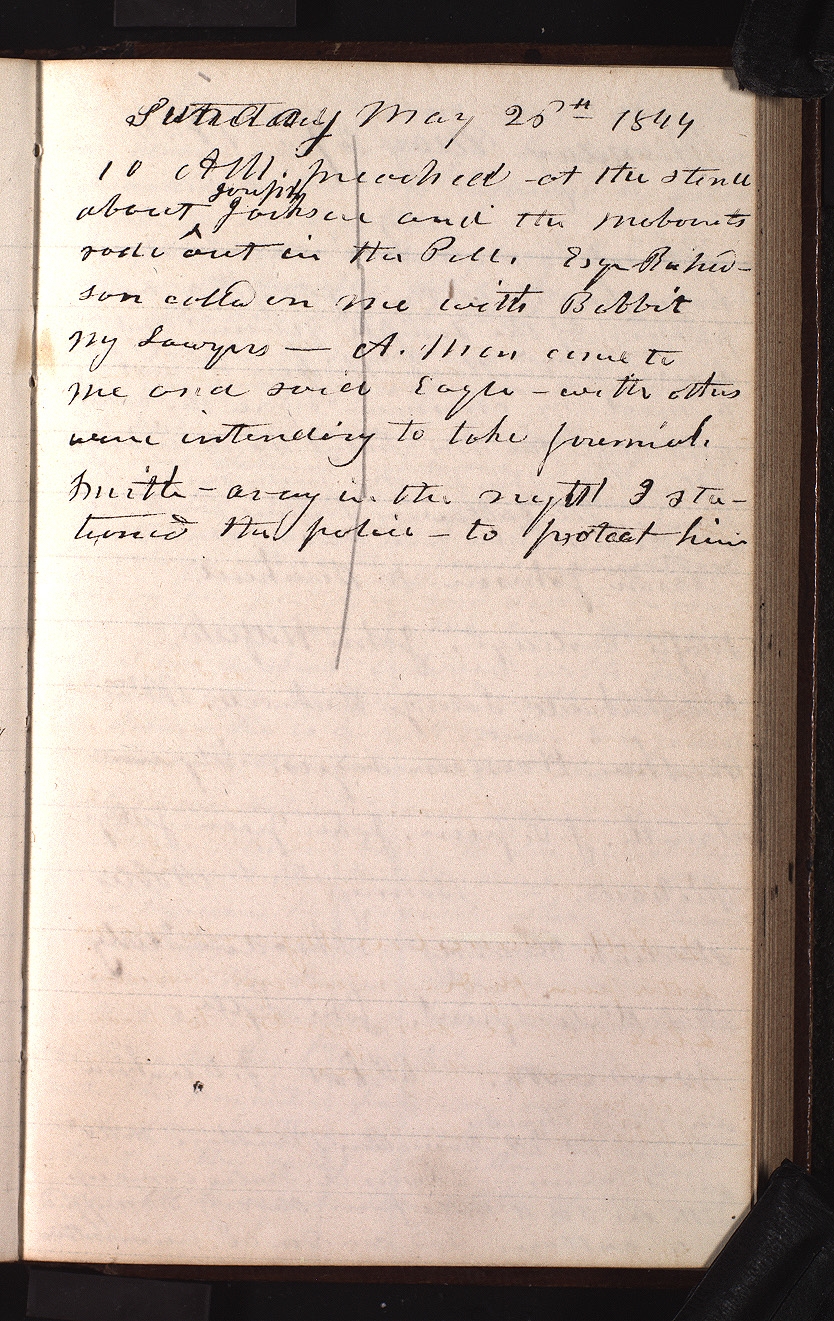 Sunday May 26th 1844
10 AM. preached - at the stand
about Joseph Jackson and the mobocrats
rode out in the P.M. Esqr Richard-
son called on me with Babbit
my Lawyers — A. Man came to
me and said Eagle - with others
were intending to take Jeremiah
Smith - away in the night I sta-
tioned the police - to protect him